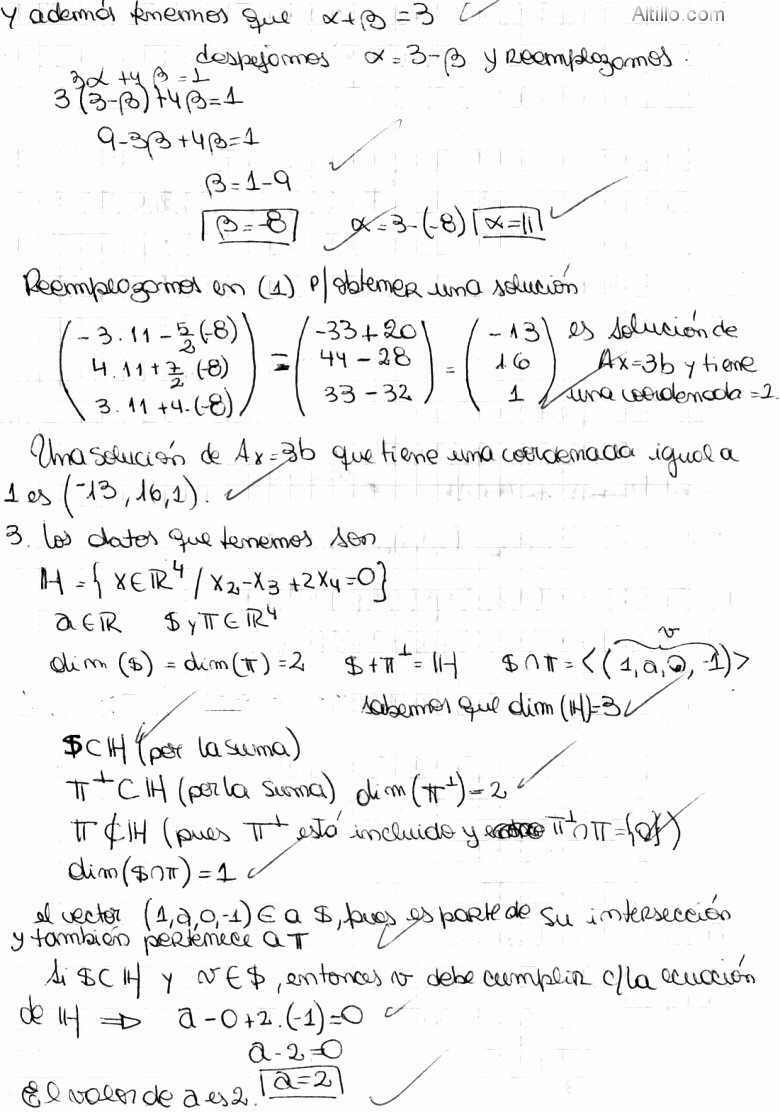 Y además tenemos que α+β=3
Altillo.com
despejamos α=3-β y Reemplazamos.
3α+4β=1
3(3-β)+4β=1
9-3β+4β=1
β=1-9
β=-8 α=3-(-8) α=11
Reemplazamos en (1) p/obtener una solución
(-3.11-5/2(-8)) = (-33+20) = (-13) es solución de
(4.11+7/2.(-8)) (44-28) (16) Ax=3b y tiene
(3.11+4.(-8)) (33-32) (1) una coordenada=1.
Una solución de Ax=3b que tiene una coordenada igual a
1 es (-13,16,1).
3. Los datos que tenemos son
H={x∈R⁴/x₂-x₃+2x₄=0}
a∈R $ y π∈R⁴
v
dim($)=dim(π)=2 $+π⊥=H $∩π=<(1,a,0,-1)>
sabemos que dim(H)=3
$⊂H (por la suma)
π⊥⊂H (por la suma) dim(π⊥)=2
π⊄H (pues π⊥ está incluido y π⊥∩π={0})
dim($∩π)=1
el vector (1,a,0,-1)∈ a $, pues es parte de su intersección
y también pertenece a π
Si $⊂H y v∈$, entonces v debe cumplir c/la ecuación
de H ⇒ a-0+2.(-1)=0
a-2=0
El valor de a es 2. a=2